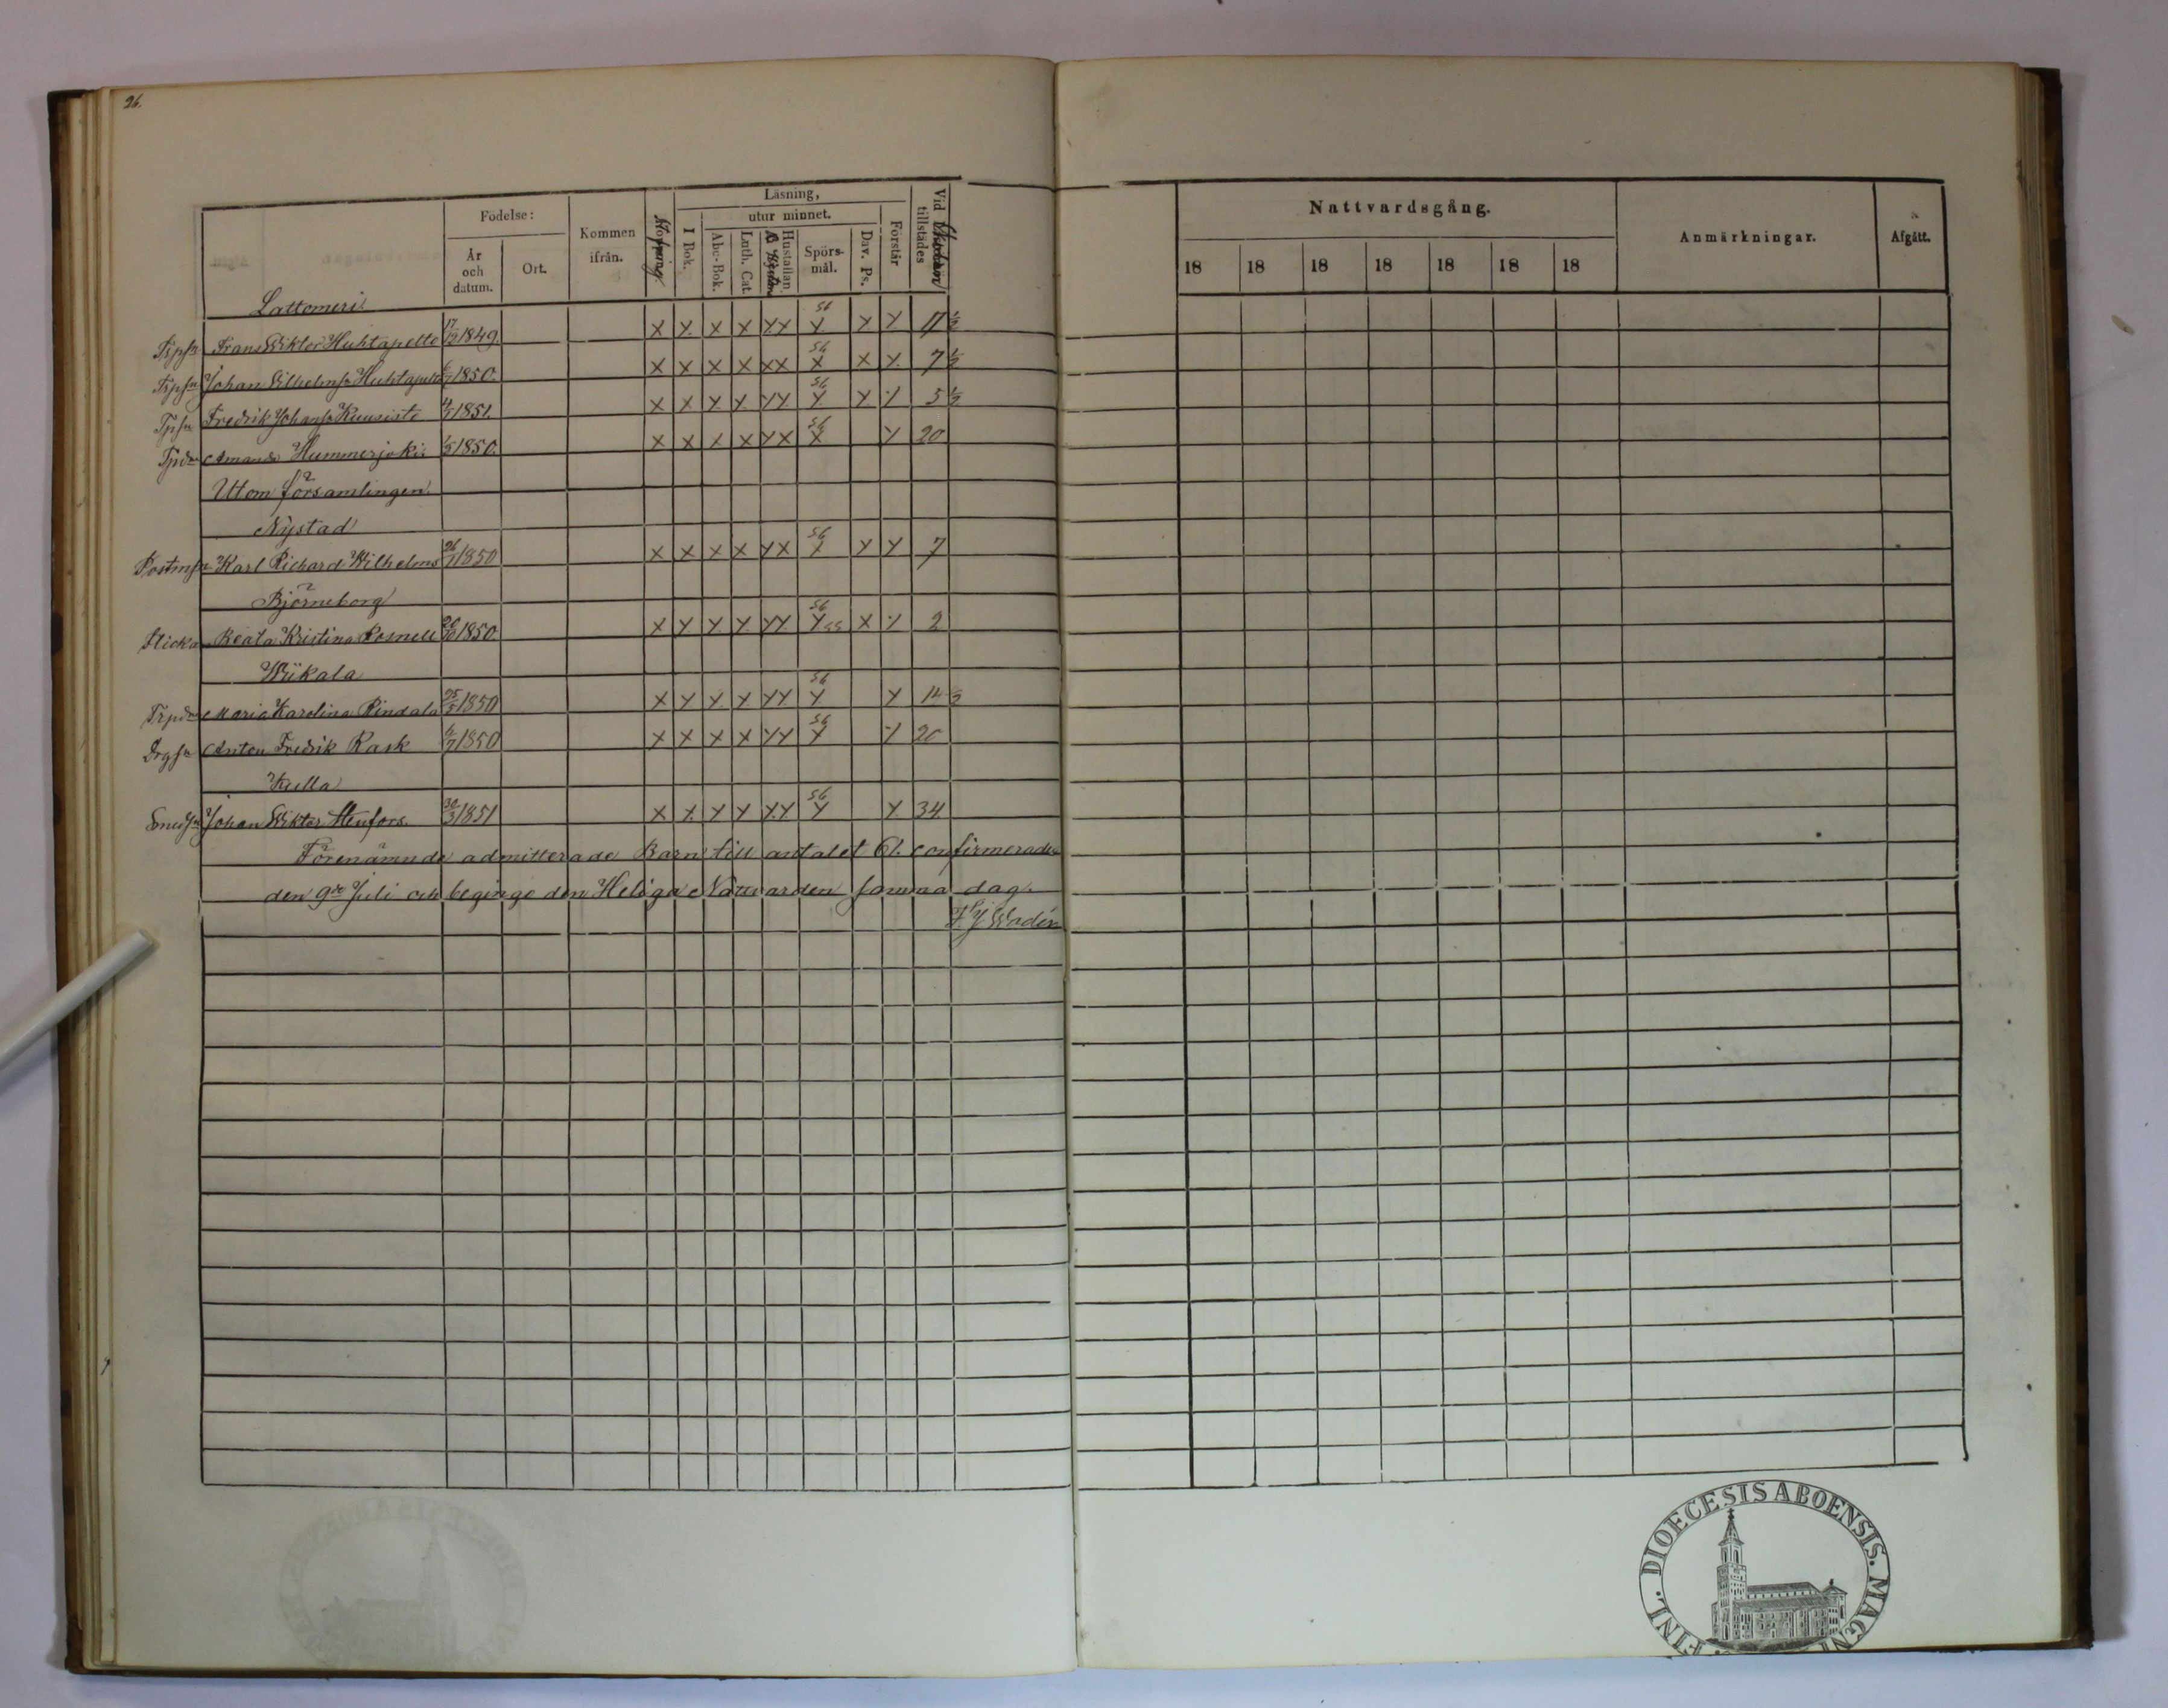 26.
Födelse:
År och datum.
Ort.
Kommen ifrån.
Läsning,
I Bok.
utur minnet.
Abc-Bok.
Luth. Cat.
Hustaflan
Spörsmål.
Dav. Ps.
Förstår
Vid tillstädes
Nattvardsgång.
18 18 18 18 18 18 18
Anmärkningar.
Afgått.
Lattomeri
Frans Wiktor Huhtapelto 17/12 1849. x x x x xx 56 x x x 11 1/2
Johan Wilhelmsn Huhtapelto 1850. x x x x xx 56 x x x 7 1/2
Fredrik Johansn Kuusisto 4/3 1851. x x x x xx 56 x x x 5 1/2
Amanda Hummerjoki 1850. x x x x xx 56 x x 20
Utom församlingen.
Nystad
Karl Richard Wilhelms 26/1 1850 x x x x xx 56 x x x 7
Björneborg
Flicka Beata Kristina 20/10 1850. x x x x xx 56 x x x 2
Wiikala
Maria Karolina Rindala 25/5 1850 x x x x xx 56 x x 14 1/2
Anton Fredrik Kask 6/7 1850 x x x x xx 56 x x 20
Kulla
Johan Wiktor Stenfors. 30/3 1851 x x x x xx 56 x x 34
Förenämnde admitterade Barn till antalet 61. confirmerades
den 9de Juli och beginge den Heliga Nattvarden samma dag.
Wadén
DIOECESIS ABOENSIS. MAGNI FINL.